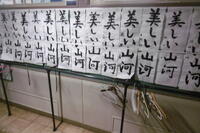 美しい山河
美しい山河
美しい山河
美しい山河
美しい山河
美しい山河
美しい山河
美しい山河
美しい山河
美しい山河